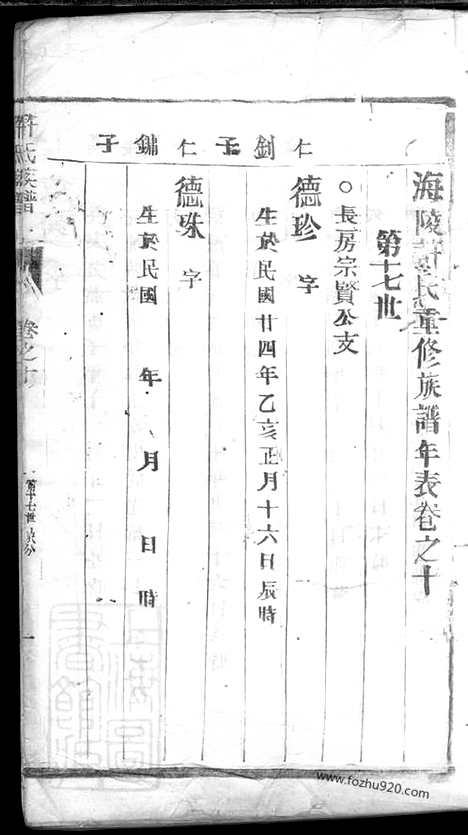 海陵許氏重修族譜年表卷之十
第十七世
○長房宗賢公支
仁釗子
德珍 字
生於民國廿四年乙亥正月十六日辰時
仁鏽子
德珠 字
生於民國 年 月 日時
許氏族譜
卷之十
第十七世
www.fozhu920.com